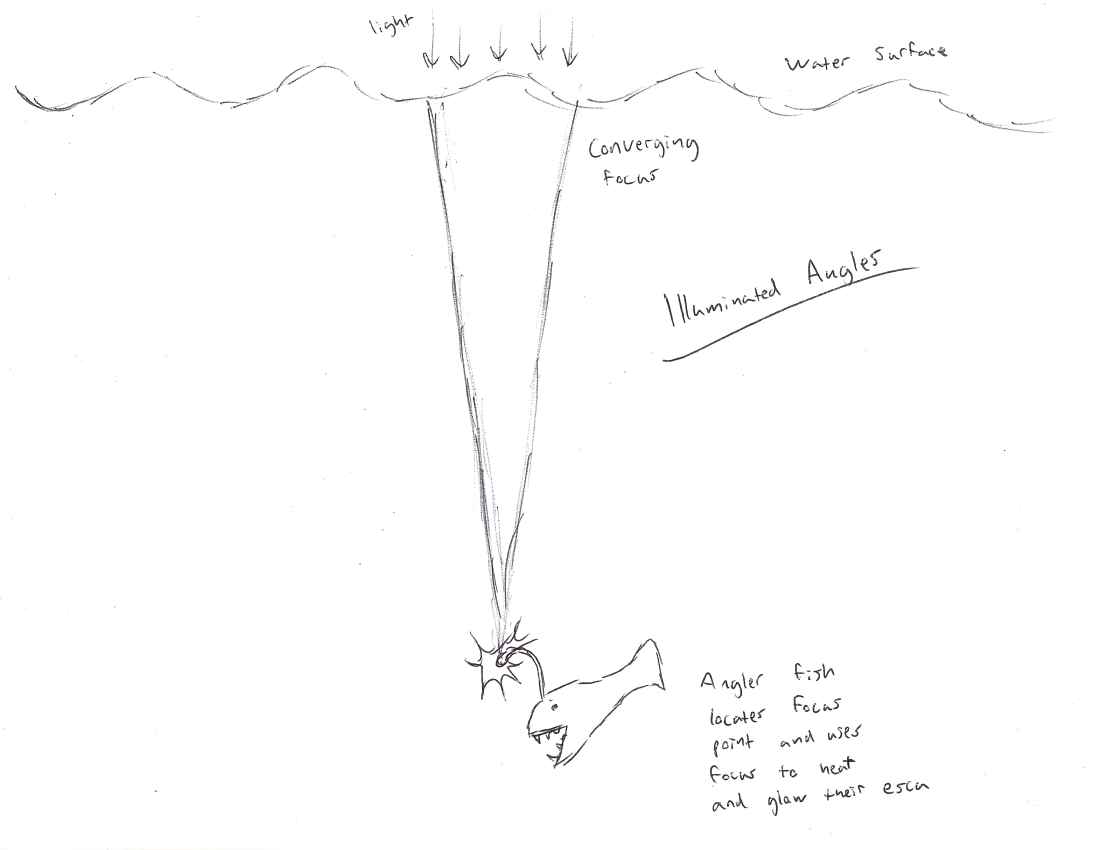 light
Water Surface
Converging
focus
Illuminated Angles
Angler fish
locates focus
point and uses
focus to heat
and glow their esca